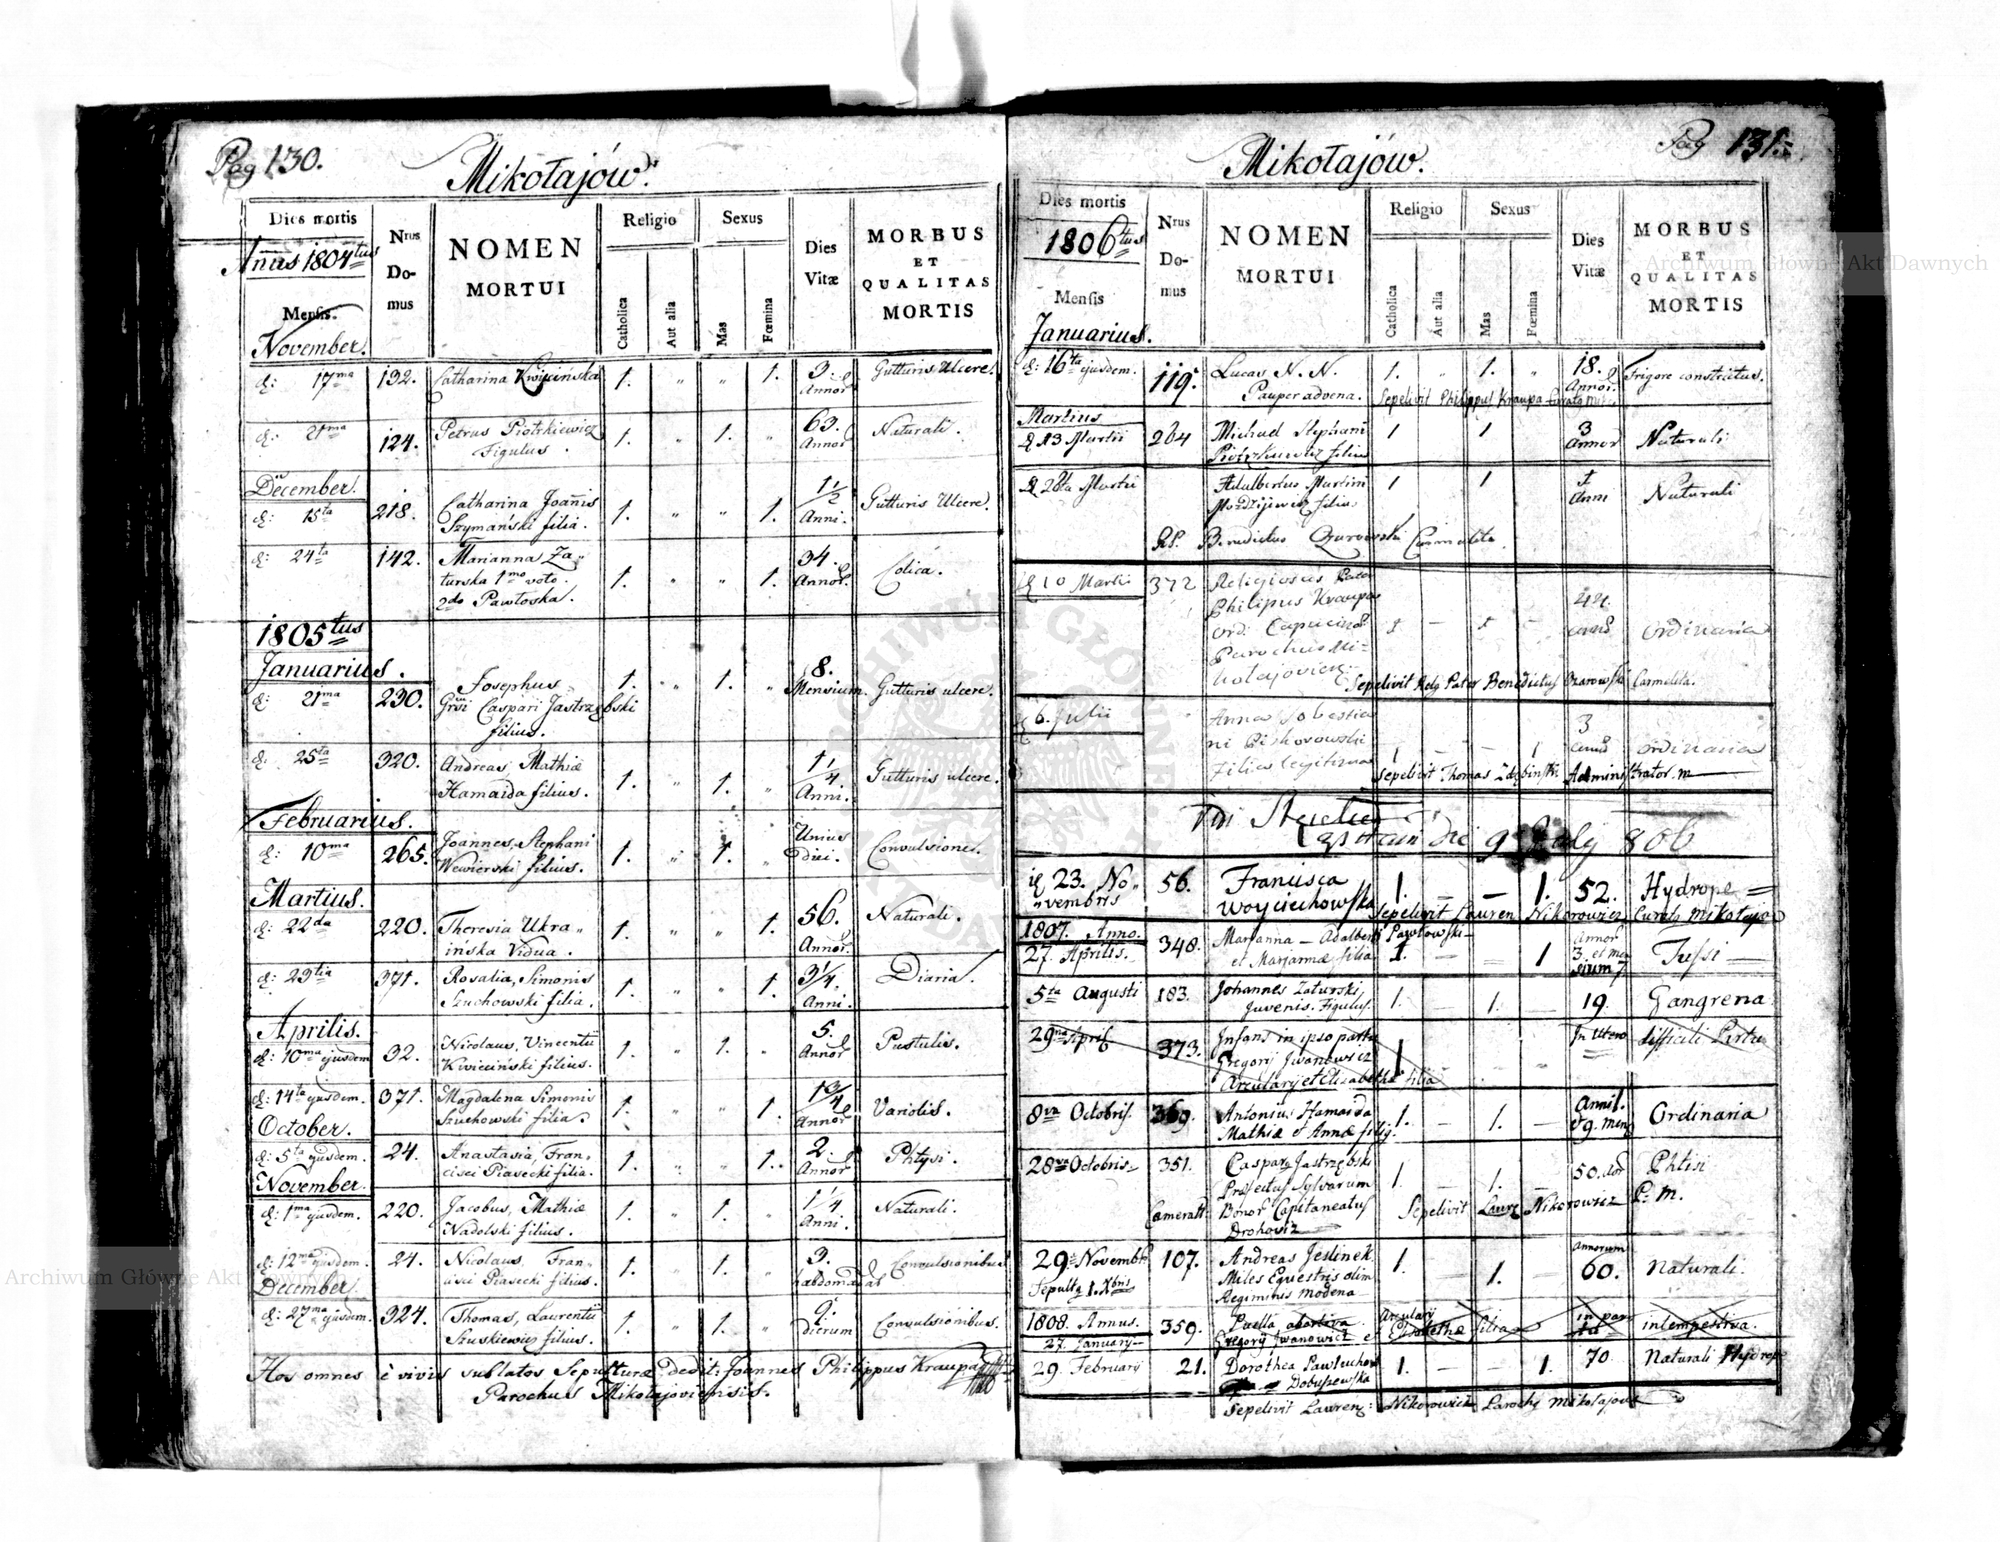 Pag 130.
Mikołajów.
Dies mortis
Nrus Domus
NOMEN
MORTUI
Religio
Sexus
Dies
Vitæ
MORBUS
ET
QUALITAS
MORTIS
Annus 1804tus
Mensis.
Catholica
Aut alia
Mas
Fœmina
November.
d: 17ma 192. Catharina Kwiecińska 1. " " 1. 3. Annor Gutturis Ulcere.
d: 21ma 124. Petrus Piotrkiewicz 1. " 1. " 63. Annor Naturali.
Figulus.
December.
d: 15ta 218. Catharina Joannis 1. " " 1. 1 1/2 Anni. Gutturis Ulcere.
Szymański filia.
d: 24ta 142. Marianna Za„ 1. " " 1. 34. Annor. Colica.
turska 1mo voto.
2do Pawłoska.
1805tus
Januarius.
d: 21ma 230. Josephus 1. " 1. " 8. Mensium. Gutturis ulcere.
Caspari Jastrzębski
filius.
d: 25ta 320. Andreas Mathiæ 1. " 1. " 1 1/4 Anni. Gutturis ulcere.
Hamaida filius.
Februarius.
d: 10ma 265. Joannes, Stephani 1. " 1. " Unius diei. Convulsione.
Wewierski filius.
Martius.
d: 22da 220. Theresia Ukra„ 1. " " 1. 56. Annor. Naturali.
ińska Vidua.
d: 23tia 371. Rosalia, Simonis 1. " " 1. 3/4. Anni. Diaria.
Szuchowski filia.
Aprilis.
d: 10ma ejusdem 32. Nicolaus, Vincentii 1. " 1. " 5. Annor Pustulis.
Kwieciński filius.
d: 14ta ejusdem. 371. Magdalena Simonis 1. " " 1. 1 3/4 Annor Variolis.
Szuchowski filia.
October.
d: 5ta ejusdem. 24. Anastasia, Fran„ 1. " " 1. 2. Annor Phtysi.
cisci Piasecki filia.
November.
d: 1ma ejusdem. 220. Jacobus, Mathiæ 1. " 1. " 1 1/4 Anni. Naturali.
Nadolski filius.
d: 12ma ejusdem. 24. Nicolaus, Fran„ 1. " 1. " 3. habdomadar Convulsionibus
cisci Piasecki filius.
December
d: 27ma ejusdem. 324. Thomas, Laurentii 1. " 1. " 9. dierum Convulsionibus.
Szuskiewicz filius.
Hos omnes è vivis sublatos Sepulturæ dedit: Joannes Philippus Kraupa
Parochus Mikołajoviensis.
Pag 131.
Mikołajów.
Dies mortis
Nrus Domus
NOMEN
MORTUI
Religio
Sexus
Dies
Vitæ
MORBUS
ET
QUALITAS
MORTIS
1806tus
Mensis
Catholica
Aut alia
Mas
Fœmina
Januarius.
d: 16ta ejusdem. 119. Lucas N. N. 1. " 1. " 18. Annor. Frigore constrictus.
Pauper advena. Sepelivit Philippus Kraupa
Martius
d 13 Martii 264 Michael Stephani 1 1 3 Annor Naturali
Piotrkiewicz filius
d 28ta Martii Adalbertus Martini 1 1 1 Anni Naturali
filius
RP. Benedictus Ozarowski Carmelita.
d 10 Martii 372 Religiosus Pater
Philipus Kraupa
Ord: Capucinor 1 — 1 — 44 annor ordinaria
Parochus Mi-
kołajovien:
Sepelivit Relg Pater Benedictus Ozarowski Carmelita.
d 6. Julii Anna Sobestia 3
ni Piskorowski 1 — — 1 annor ordinaria
Filia legitima Sepelivit Thomas Administrator m
die 9 July 806
d 23. No„ 56. Francisca 1. — — 1. 52. Hydrope
vembris Woyciechowska Sepelivit Lauren Nikorowicz Curats Mikołajo
1807. Anno. 348. Marianna — Adalberti Pawłowski annor
27. Aprilis. et Mariannæ filia 1. — — 1 3 et men sium 7 Tussi
5ta Augusti 183. Johannes Zaturski 1. — 1. — 19. Gangrena
Juvenis. Figulus.
29na April 373. Infans in ipso partu 1 In Utero difficili Partu
Gregory Iwanowicz
Arcularÿ et Elisabethæ filia
8va Octobris. 369. Antonius Hamaida 1. — 1. — Anni 1. et 9. Mens Ordinaria
Mathiæ et Annæ filÿ.
28va Octobris. 351. Caspar Jastrzębski 1. — 1. 50. Phtisi
Præfectus Sylvarum P. M.
Cameral: Bonor Capitaneatus Sepelivit Laurz Nikorowicz
Drohowiz
29. Novembr 107. Andreas Jeslinek 1. — 1. annorum 60. Naturali.
Sepulta 1. Xbris Miles Equestris olim
Regiminis Modena
1808. Annus. 359. Puella abortiva Arcularÿ in par tu intempestiva.
27. January Gregory Iwanowicz et Elisabethæ filia
29. February 21. Dorothea 1. — — 1. 70 Naturali Hydrope
Dobuszewska
Sepelivit Lawrenz: Nikorowicz Paroch Mikołajow
Archiwum Główne Akt Dawnych
Archiwum Główne Akt Dawnych
ARCHIWUM GŁÓWNE AKT DAWNYCH